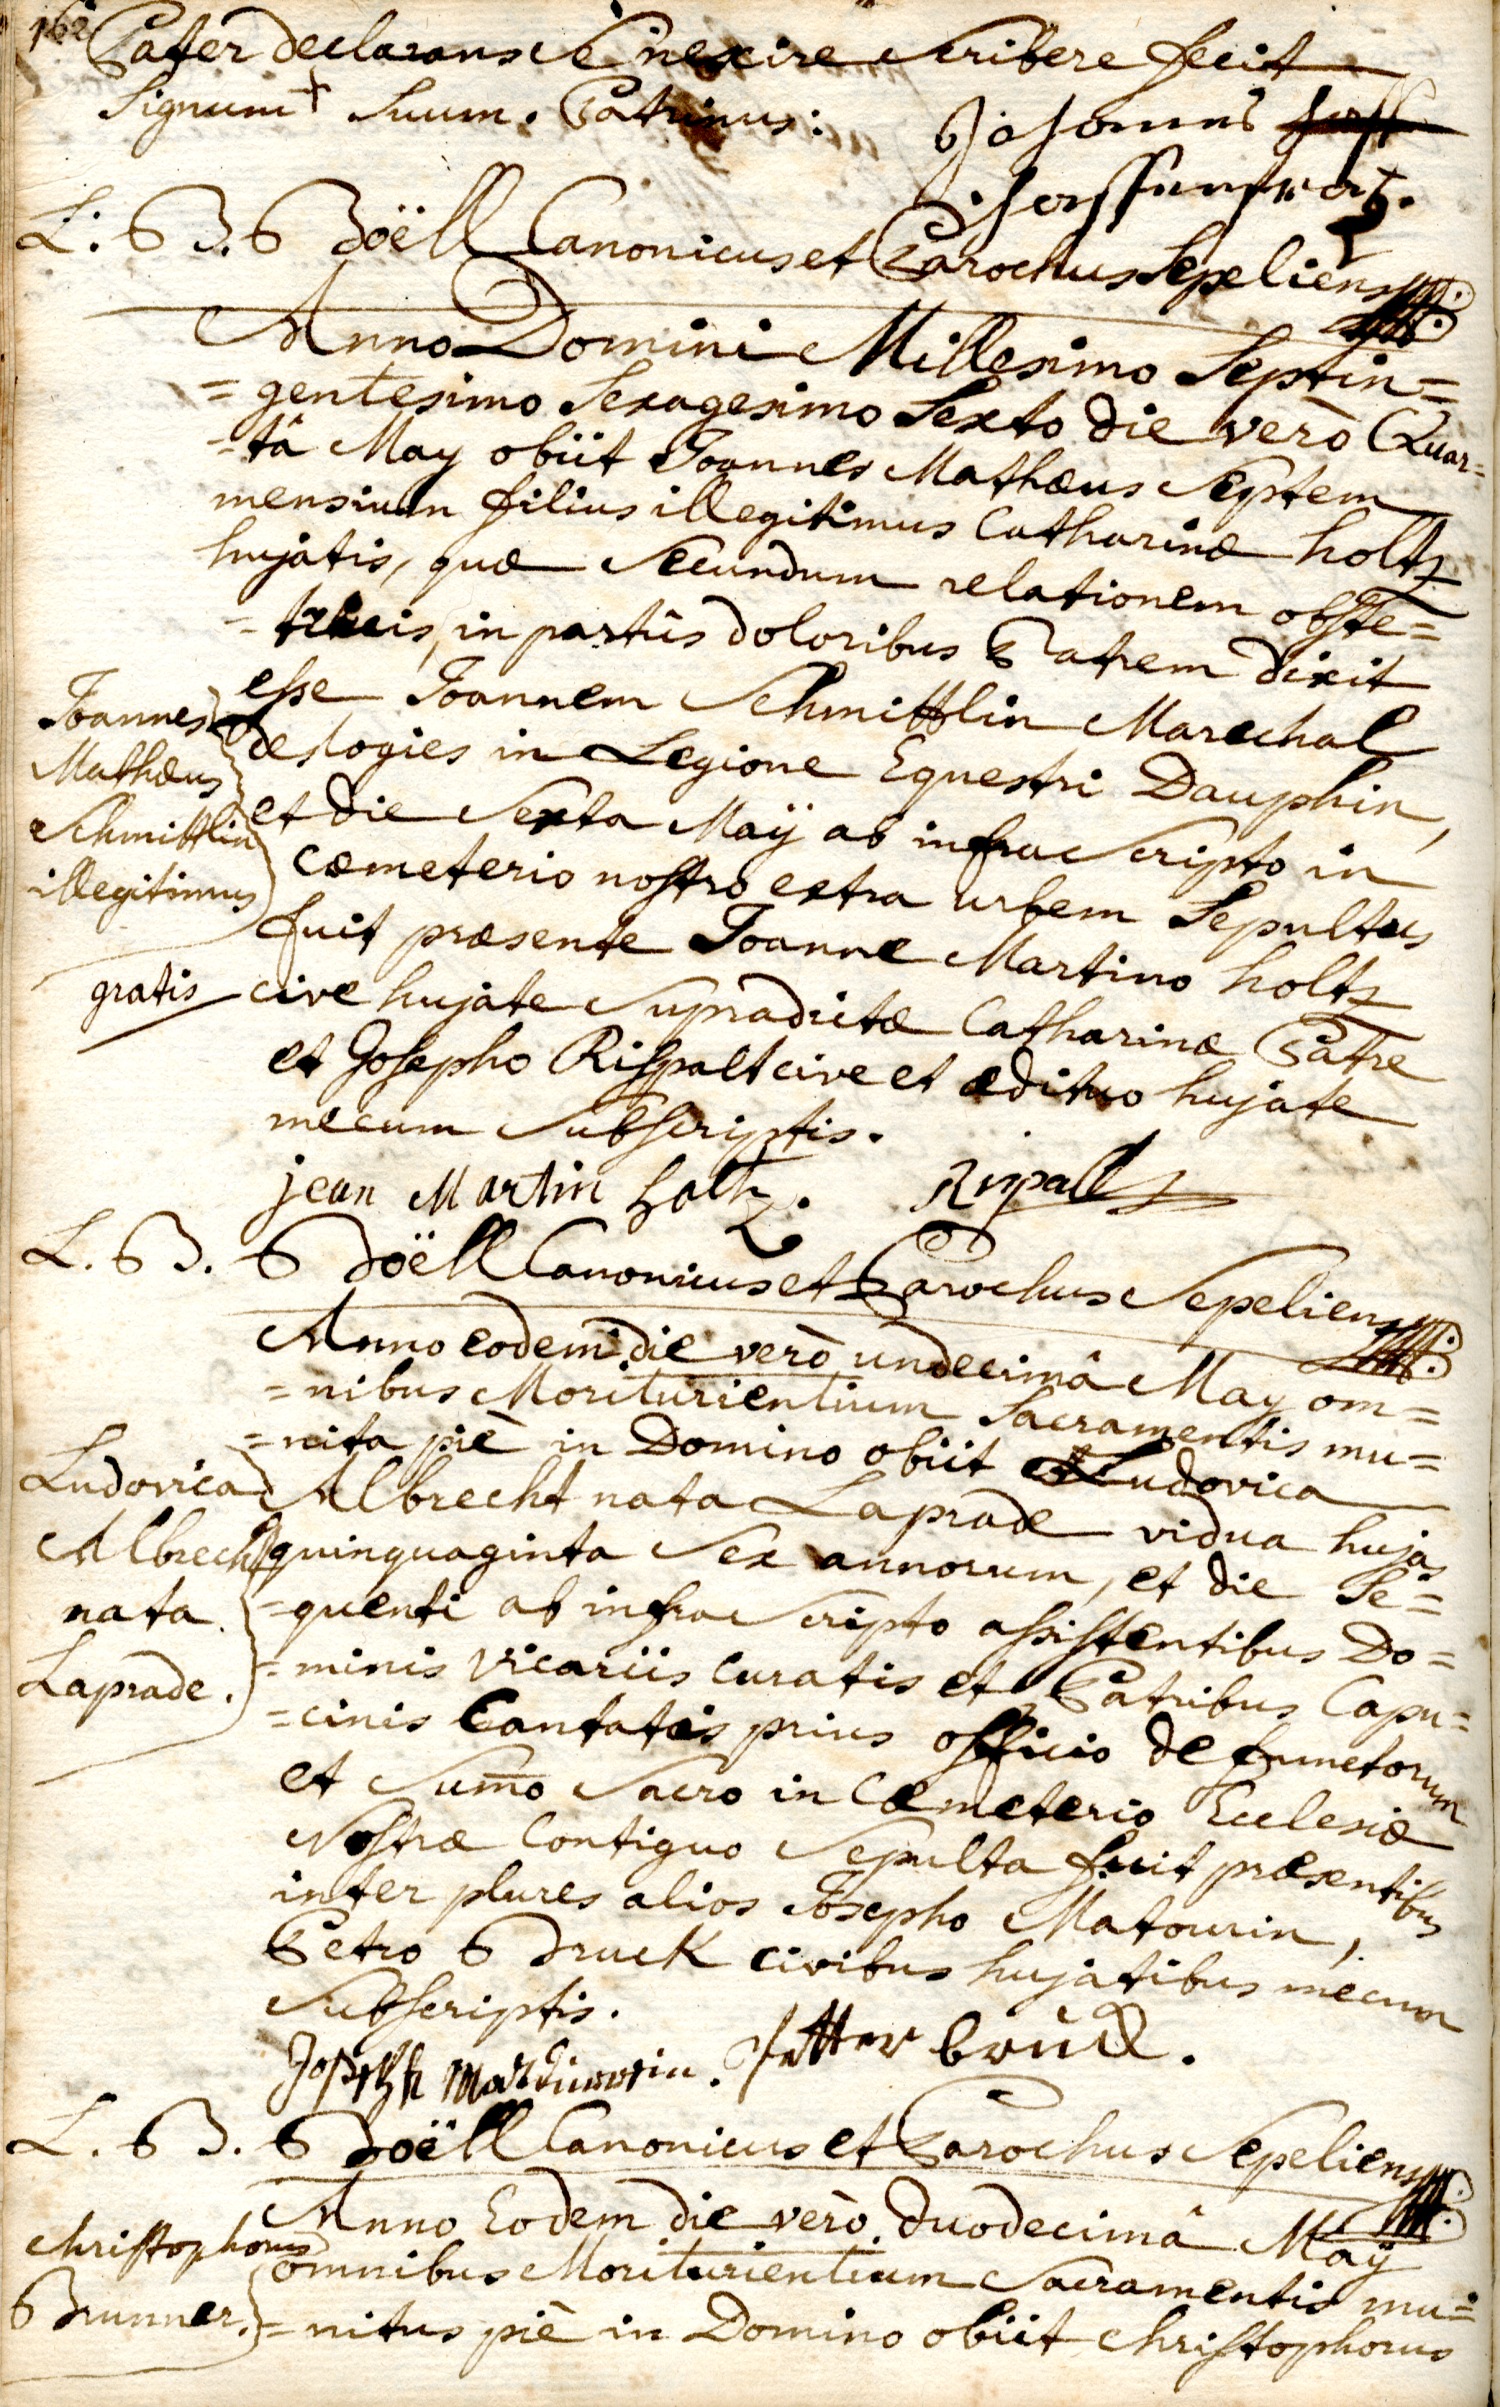 162
Pater declarans se nescire scribere fecit
Signum + suum. Patrinus:
Johannes
L: B. Boëll Canonicus et Parochus Sepeliens
Anno Domini Millesimo Septin=
=gentesimo Sexagesimo Sexto die verò Quar=
=tâ May obiit Joannes Mathæus Septem
mensium filius illegitimus Catharinæ holtz
hujatis, quæ secundum relationem obste=
=tricis, in partûs doloribus Patrem dixit
esse Joannem Schmittlin Marechal
des logies in Legione Equestri Dauphin,
et die Sexta Maÿ ab infra scripto in
cæmeterio nostro extra urbem Sepultus
fuit præsente Joanne Martino holtz
cive hujate supradictæ Catharinæ Patre
et Josepho Rispalt cive et ædituo hujate
mecum subscriptis.
Joannes
Mathæus
Schmittlin
illegitimus
gratis
jean Martin holtz. Rispallt
L. B. Boëll Canonicus et Parochus Sepeliens
Anno eodem die verò undecimâ May om=
=nibus Moriturientium Sacramentis mu=
=nita piè in Domino obiit Ludovica
Albrecht nata Laprade vidua hujas
quinquaginta Sex annorum, et die Se=
=quenti ab infra scripto assistentibus Do=
=minis vicariis curatis et Patribus Capu=
=cinis Cantatis prius officio defunctorum
et Sum̄o Sacro in Cæmeterio Ecclesiæ
Nostræ Contiguo Sepulta fuit præsentibus
inter plures alios Josepho Matourin,
Petro Bruck civibus hujatibus mecum
subscriptis.
Ludovica
Albrecht
nata
Laprade.
Joseph . Petter bruck.
L. B. Boëll Canonicus et Parochus Sepeliens
Anno Eodem die verò duodecimâ Maÿ
omnibus Moriturientium Sacramentis mu=
=nitus piè in Domino obiit Christophorus
Christophorus
Brunner.